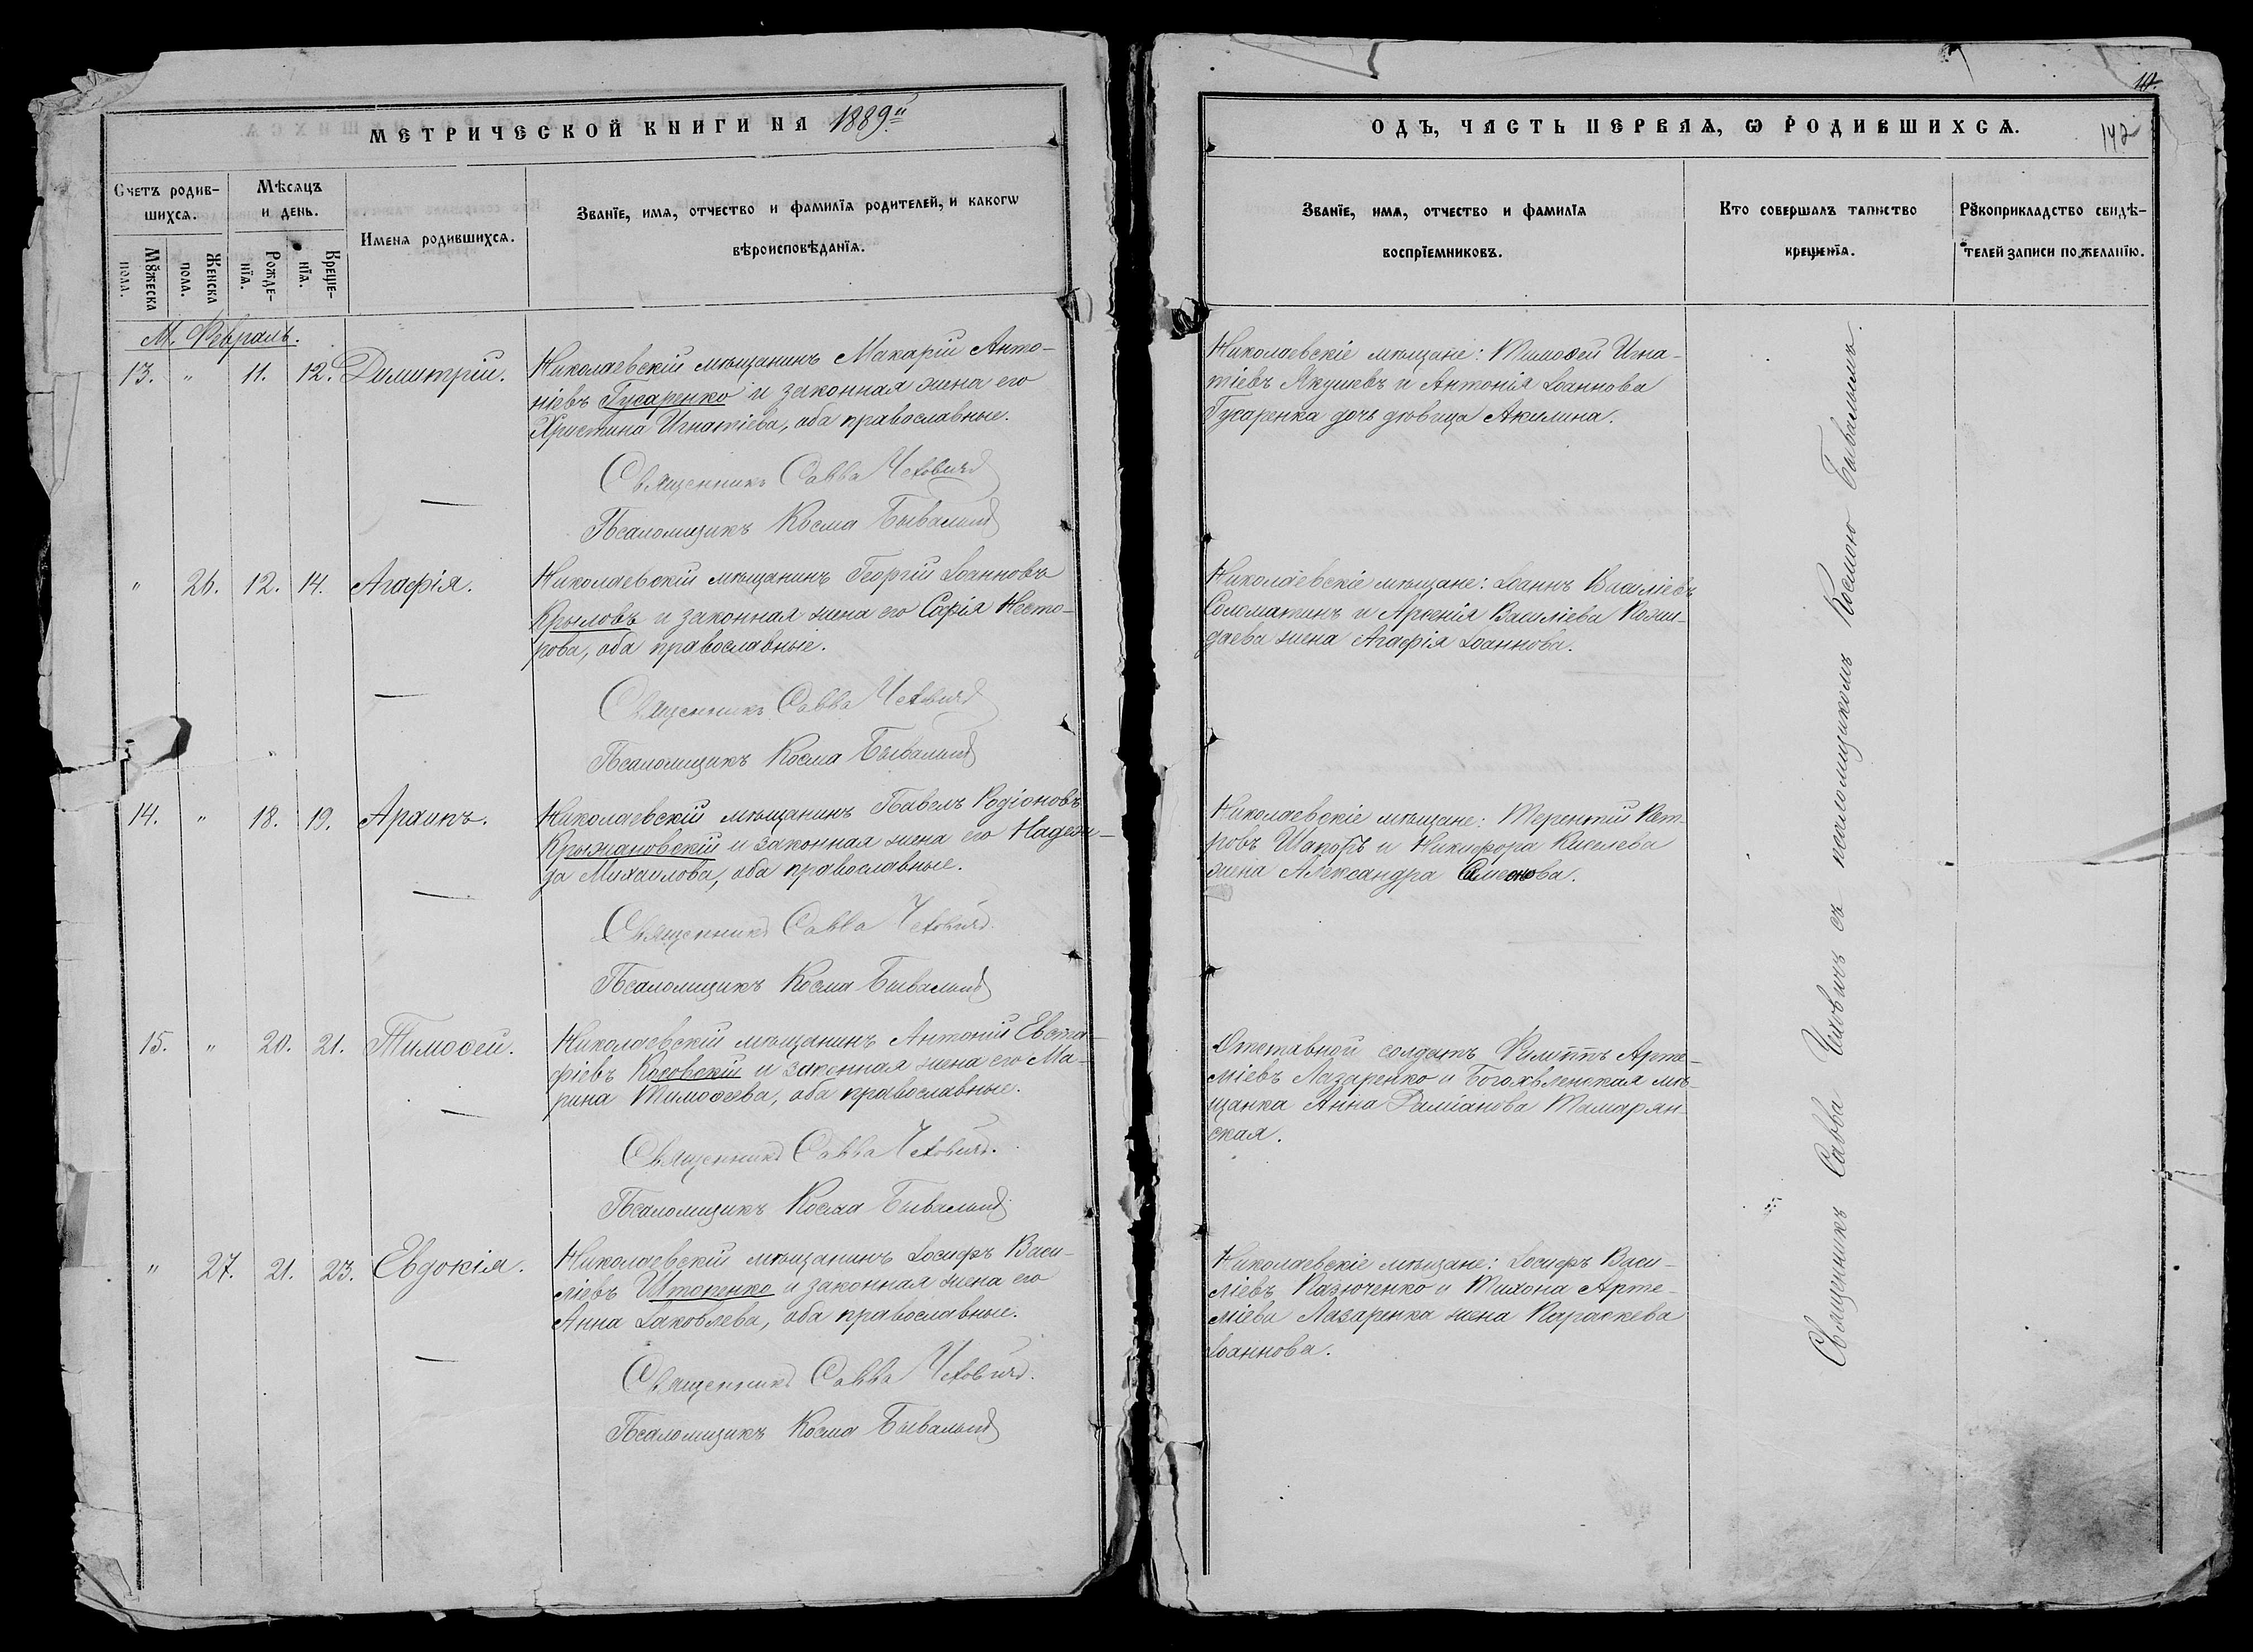 МЕТРИЧЕСКОЙ КНИГИ НА 1889й
Счетъ родив-
шихся.
Мѣсяцъ
и день.
Имена родившихся.
Званїе, имя, отчество и фамилїя родителей, и какогѡ
вѣроисповѣданїя.
Мꙋжеска
пола.
Женска
пола.
Рожде-
нїя.
Креще-
нїя.
М. Февраль.
13. " 11. 12. Димитрій. Николаевскій мѣщанинъ Макарій Анто-
ніевъ Гусаренко и законная жена его
Христина Игнатіева, оба православные.
Священникъ Савва Чеховичъ
Псаломщикъ Косма Бывалый
" 26. 12. 14. Агафія. Николаевскій мѣщанинъ Георгій Іоанновъ
Крыловъ и законная жена его Софія Несто-
рова, оба православные.
Священникъ Савва Чеховичъ
Псаломщикъ Косма Бывалый
14. " 18. 19. Николаевскій мѣщанинъ Павелъ Родіоновъ
Крыжановскій и законная жена его Надеж-
да Михаилова, оба православные.
Священникъ Савва Чеховичъ
Псаломщикъ Косма Бывалый
15. " 20. 21. Тимоѳей. Николаевскій мѣщанинъ Антоній Евста-
фіевъ Косовскій и законная жена его Ма-
рина Тимоѳеева, оба православные.
Священникъ Савва Чеховичъ.
Псаломщикъ Косма Бывалый
" 27. 21. 23. Евдокія. Николаевскій мѣщанинъ Іосифъ Васи-
ліевъ Шторенко и законная жена его
Анна Іаковлева, оба православные.
Священникъ Савва Чеховичъ.
Псаломщикъ Косма Бывалый
142
ОДЪ, ЧАСТЬ ПЕРВАЯ, Ѡ РОДИВШИХСЯ.
Званїе, имя, отчество и фамилїя
воспрїемниковъ.
Кто совершалъ таинство
крещенїя.
Рꙋкоприкладство свидѣ-
телей записи по желанїю.
Николаевскіе мѣщане: Тимоѳей Игна-
тіевъ Якушевъ и Антонія Іоаннова
Гусаренка дочь дѣвица Акилина.
Николаевскіе мѣщане: Іоаннъ Василіевъ
Соломатинъ и Арсенія Василіева
жена Агафія Іоаннова.
Николаевскіе мѣщане: Терентій Пет-
ровъ и Никифора Киселева
жена Александра Симеонова.
Отставной солдатъ Филиппъ Арте-
міевъ Лазаренко и Богоявленская мѣ-
щанка Анна Даміанова Тамарян-
ская.
Николаевскіе мѣщане: Іосифъ Васи-
ліевъ Пазюченко и Тихона Арте-
міева Лазаренка жена Параскева
Іоаннова.
Священникъ Савва Чеховичъ съ псаломщикомъ Космою Бывалымъ.